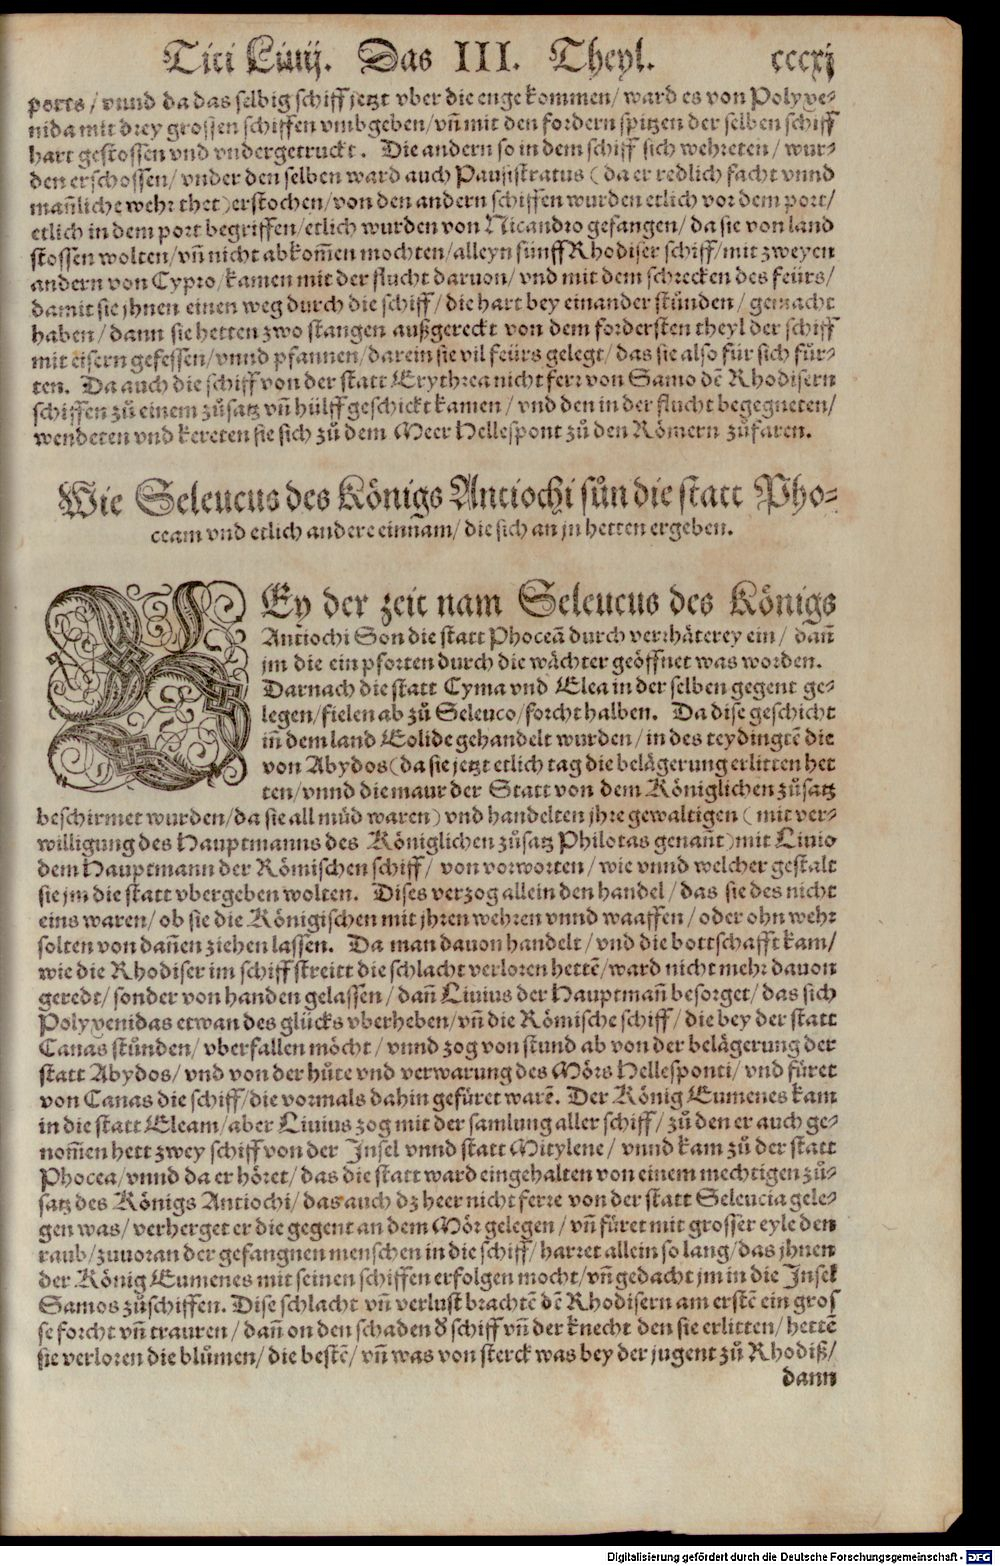 Titi Liuij. Das III. Theyl. cccxj
ports / vnnd da das selbig schiff jetzt vber die enge kommen / ward es von Polyxe-
nida mit drey grossen schiffen vmbgeben / vñ mit den fordern spitzen der selben schiff
hart gestossen vnd vndergetruckt. Die andern so in dem schiff sich wehreten / wur-
den erschossen / vnder den selben ward auch Pausistratus (da er redlich facht vnnd
mañliche wehr thet) erstochen / von den andern schiffen wurden etlich vor dem port /
etlich in dem port begriffen / etlich wurden von Nicandro gefangen / da sie von land
stossen wolten / vñ nicht abkom̃en mochten / alleyn fünff Rhodiser schiff / mit zweyen
andern von Cypro / kamen mit der flucht daruon / vnd mit dem schrecken des feürs /
damit sie jhnen einen weg durch die schiff / die hart bey einander stůnden / gemacht
haben / dann sie hetten zwo stangen außgereckt von dem fordersten theyl der schiff
mit eisern gefessen / vnnd pfannen / darein sie vil feürs gelegt / das sie also für sich für-
ten. Da auch die schiff von der statt Erythrea nicht ferr von Samo dẽ Rhodisern
schiffen zů einem zůsatz vñ hülff geschickt kamen / vnd den in der flucht begegneten /
wendeten vnd kereten sie sich zů dem Meer Hellespont zů den Römern zůfaren.
Wie Seleucus des Königs Antiochi sůn die statt Pho-
ceam vnd etlich andere einnam / die sich an jn hetten ergeben.
BEy der zeit nam Seleucus des Königs
Antiochi Son die statt Phoceã durch verrhäterey ein / dañ
jm die ein pforten durch die wächter geöffnet was worden.
Darnach die statt Cyma vnd Elea in der selben gegent ge-
legen / fielen ab zů Seleuco / forcht halben. Da dise geschicht
iñ dem land Eolide gehandelt wurden / in des teydingtẽ die
von Abydos (da sie jetzt etlich tag die belägerung erlitten het
ten / vnnd die maur der Statt von dem Königlichen zůsatz
beschirmet wurden / da sie all müd waren) vnd handelten jhre gewaltigen (mit ver-
willigung des Hauptmanns des Königlichen zůsatz Philotas genañt) mit Liuio
dem Hauptmann der Römischen schiff / von vorworten / wie vnnd welcher gestalt
sie jm die statt vbergeben wolten. Dises verzog allein den handel / das sie des nicht
eins waren / ob sie die Königischen mit jhren wehren vnnd waaffen / oder ohn wehr
solten von dañen ziehen lassen. Da man dauon handelt / vnd die bottschafft kam /
wie die Rhodiser im schiff streitt die schlacht verloren hettẽ / ward nicht mehr dauon
geredt / sonder von handen gelassen / dañ Liuius der Hauptmañ besorget / das sich
Polyxenidas etwan des glücks vberheben / vñ die Römische schiff / die bey der statt
Canas stůnden / vberfallen möcht / vnnd zog von stund ab von der belägerung der
statt Abydos / vnd von der hůte vnd verwarung des Mörs Hellesponti / vnd füret
von Canas die schiff / die vormals dahin gefüret warẽ. Der König Eumenes kam
in die statt Eleam / aber Liuius zog mit der samlung aller schiff / zů den er auch ge-
nom̃en hett zwey schiff von der Insel vnnd statt Mitylene / vnnd kam zů der statt
Phocea / vnnd da er höret / das die statt ward eingehalten von einem mechtigen zů-
satz des Königs Antiochi / das auch dz heer nicht ferre von der statt Seleucia gele-
gen was / verherget er die gegent an dem Mör gelegen / vñ füret mit grosser eyle den
raub / zuuoran der gefangnen menschen in die schiff / harret allein so lang / das jhnen
der König Eumenes mit seinen schiffen erfolgen mocht / vñ gedacht jm in die Insel
Samos zůschiffen. Dise schlacht vñ verlust brachtẽ dẽ Rhodisern am erstẽ ein gros
se forcht vñ trauren / dañ on den schaden d̕ schiff vñ der knecht den sie erlitten / hettẽ
sie verloren die blůmen / die bestẽ / vñ was von sterck was bey der jugent zů Rhodiß /
dann
Digitalisierung gefördert durch die Deutsche Forschungsgemeinschaft - DFG